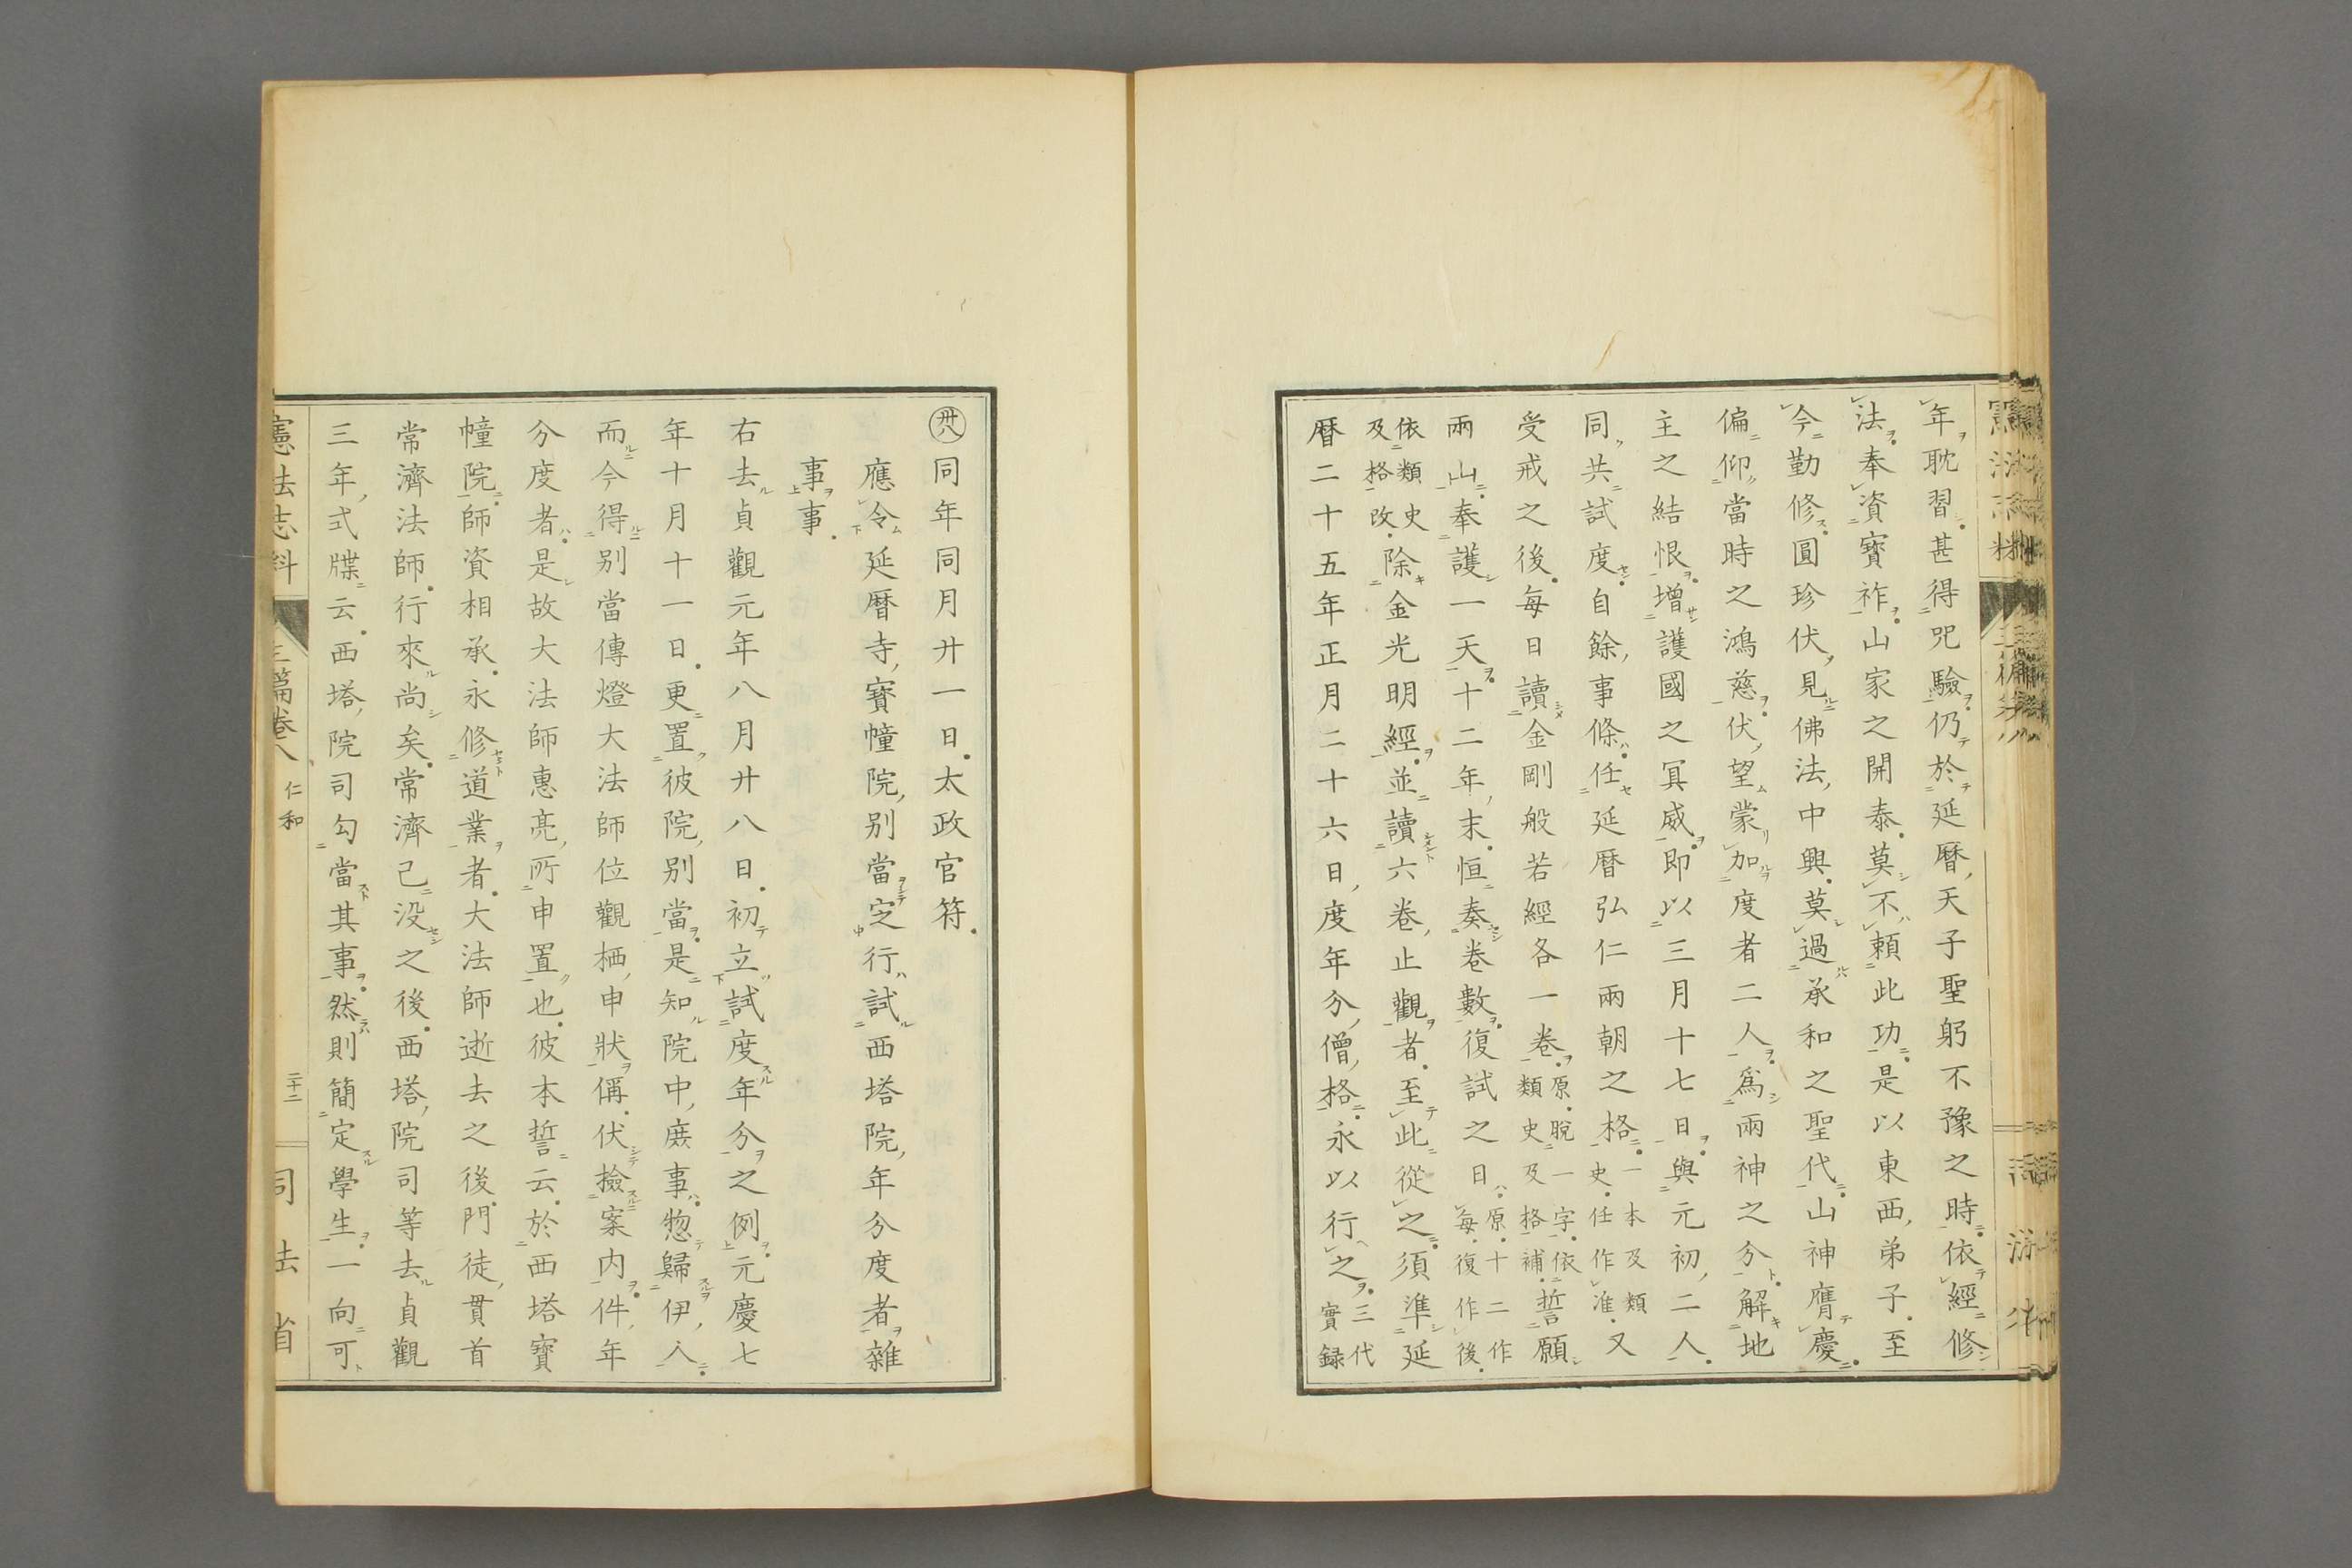 年耽習甚得咒驗仍於延曆天子聖躬不豫之時依經修
法奉資寶祚山家之開泰莫不賴此功是以東西弟子至
今勤修圓珍伏見佛法中興莫過承和之聖代山神膺慶
偏仰當時之鴻慈伏望蒙加度者二人爲兩神之分解地
主之結恨增護國之冥威即以三月十七日與元初二人
同共試度自餘事條任延曆弘仁兩朝之格一本及類史任作准又
受戒之後每日讀金剛般若經各一卷原脫一字依類史及格補誓願
兩山奉護一天十二年末恒奏卷數復試之日原十二作每復作後
依類史及格改除金光明經並讀六卷止觀者至此從之須準延
曆二十五年正月二十六日度年分僧格永以行之三代實録
㊳同年同月廿一日太政官符
應令延曆寺寶幢院別當定行試西塔院年分度者雜
事事
右去貞觀元年八月廿八日初立試度年分之例元慶七
年十月十一日更置彼院別當是知院中庶事惣歸伊人
而今得別當傳燈大法師位觀栖申狀偁伏撿案内件年
分度者是故大法師惠亮所申置也彼本誓云於西塔寶
幢院師資相承永修道業者大法師逝去之後門徒貫首
常濟法師行來尚矣常濟已没之後西塔院司等去貞觀
三年式牒云西塔院司勾當其事然則簡定學生一向可
憲法志料 三篇卷八 仁和 二十二 司法省